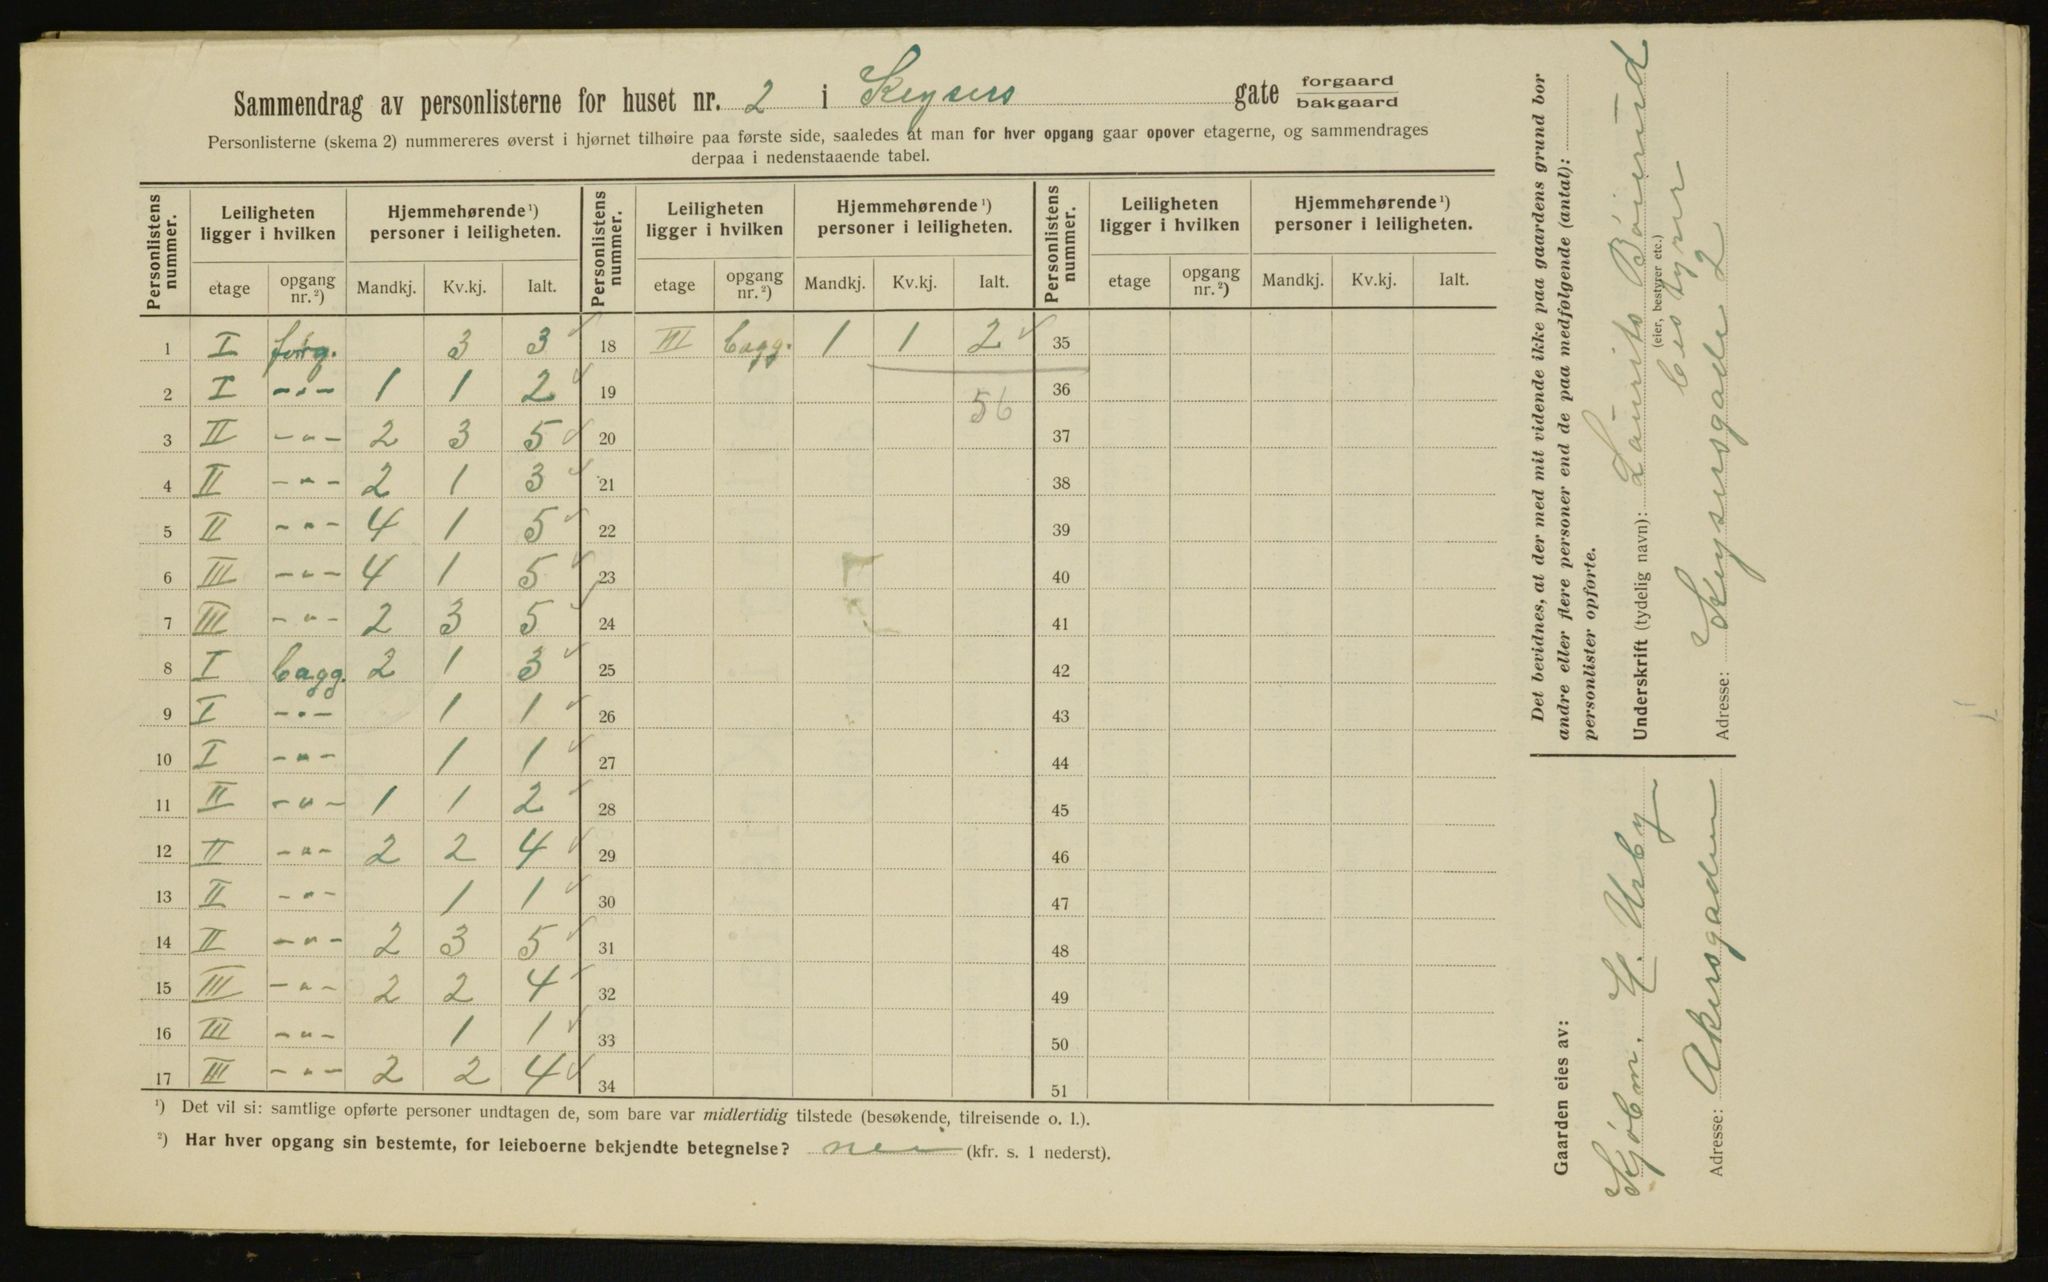 Sammendrag av personlisterne for huset nr. 2 i Keysers gate forgaard bakgaard
Personlisterne (skema 2) nummereres øverst i hjørnet tilhøire paa første side, saaledes at man for hver opgang gaar opover etagerne, og sammendrages
derpaa i nedenstaaende tabel.
Personlistens nummer. Leiligheten ligger i hvilken Hjemmehørende ¹) personer i leiligheten. Personlistens nummer. Leiligheten ligger i hvilken Hjemmehørende ¹) personer i leiligheten. Personlistens nummer. Leiligheten ligger i hvilken Hjemmehørende ¹) personer i leiligheten.
etage opgang nr. ²) Mandkj. Kv.kj. Ialt. etage opgang nr. ²) Mandkj. Kv.kj. Ialt. etage opgang nr. ²) Mandkj. Kv.kj. Ialt.
1 I forg. 3 3 18 III bagg. 1 1 2 35
2 I -"- 1 1 2 19 56 36
3 II -"- 2 3 5 20 37
4 II -"- 2 1 3 21 38
5 II -"- 4 1 5 22 39
6 III -"- 4 1 5 23 40
7 III -"- 2 3 5 24 41
8 I bagg. 2 1 3 25 42
9 I -"- 1 1 26 43
10 I -"- 1 1 27 44
11 II -"- 1 1 2 28 45
12 II -"- 2 2 4 29 46
13 II -"- 1 1 30 47
14 II -"- 2 3 5 31 48
15 III -"- 2 2 4 32 49
16 III -"- 1 1 33 50
17 III -"- 2 2 4 34 51
¹) Det vil si: samtlige opførte personer undtagen de, som bare var midlertidig tilstede (besøkende, tilreisende o. l.).
²) Har hver opgang sin bestemte, for leieboerne bekjendte betegnelse? nei (kfr. s. 1 nederst).
Det bevidnes, at der med mit vidende ikke paa gaardens grund bor
andre eller flere personer end de paa medfølgende (antal):
personlister opførte.
Underskrift (tydelig navn): Laurits Böierud
(eier, bestyrer etc.)
bestyrer
Adresse: Keysersgade 2
Gaarden eies av:
Kjöbm. H. Urby
Adresse: Akersgaden